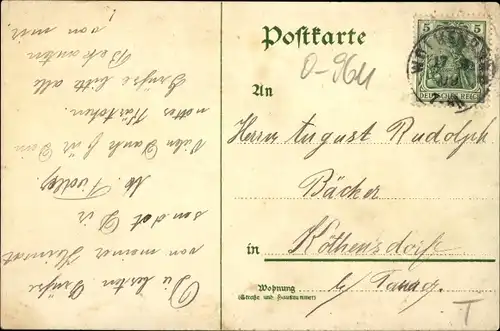 Postkarte
5 5
DEUTSCHES REICH
0-964
An
Herrn August Rudolph
Bäcker
in Köthensdorf
b/ Taura
Wohnung
(Straße und Hausnummer)
T
Die besten Grüße
von meiner Heimat
sendet Dir
Vielen Dank für Dein
nettes Kärtchen.
Grüße bitte alle
Bekannten
von mir!